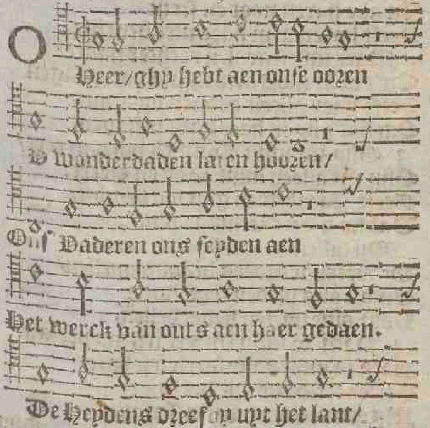 O
Heer/ ghy hebt aen onse ooren
V wonderdaden laten hooren/
Ons Vaderen ons seyden aen
Het werck van outs aen haer gedaen.
De Heydens dreef gy uyt het lant/